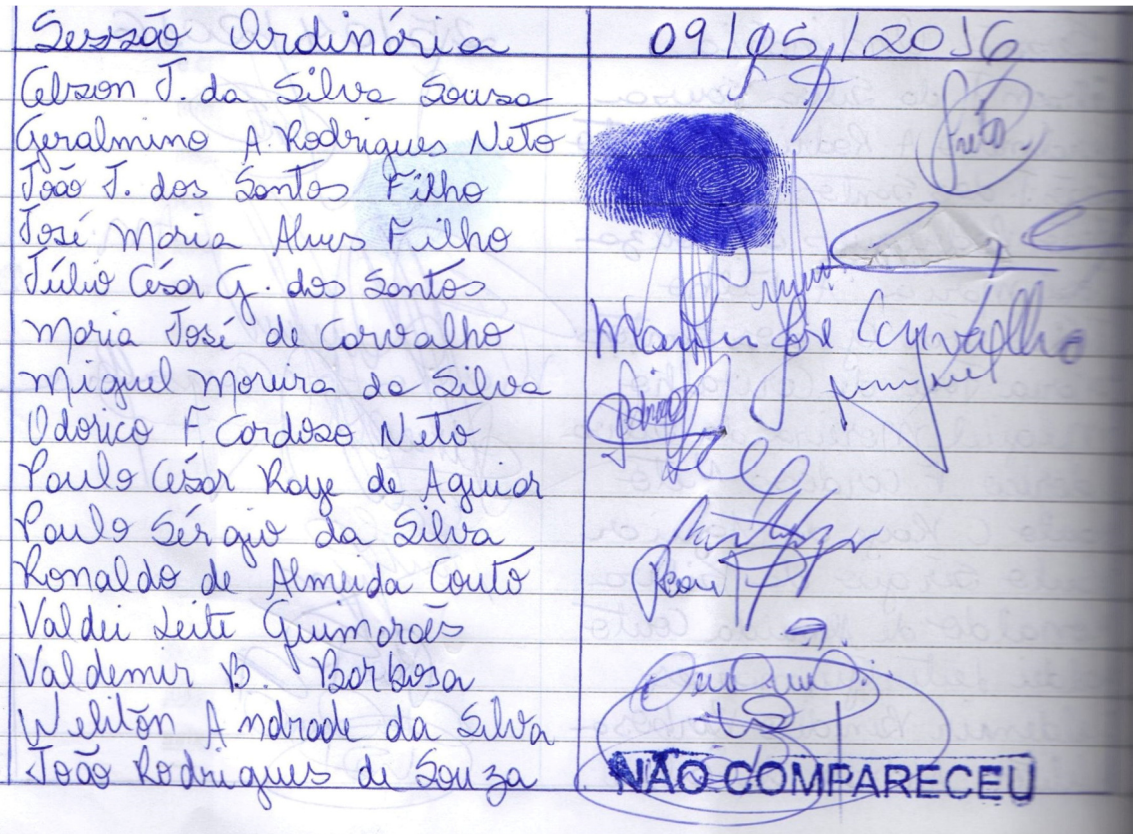 Sessão Ordinária 09/05/2016
Celson J. da Silva Sousa
Geralmino A. Rodrigues Neto Neto
João J. dos Santos Filho
José Maria Alves Filho
Júlio César G. dos Santos
Maria José de Carvalho Maria José Carvalho
Miguel Moreira da Silva Miguel
Odorico F. Cardoso Neto
Paulo César Raye de Aguiar
Paulo Sérgio da Silva
Ronaldo de Almeida Couto
Valdei Leite Guimarães
Valdemir B. Barbosa
Weliton Andrade da Silva
João Rodrigues de Souza NÃO COMPARECEU